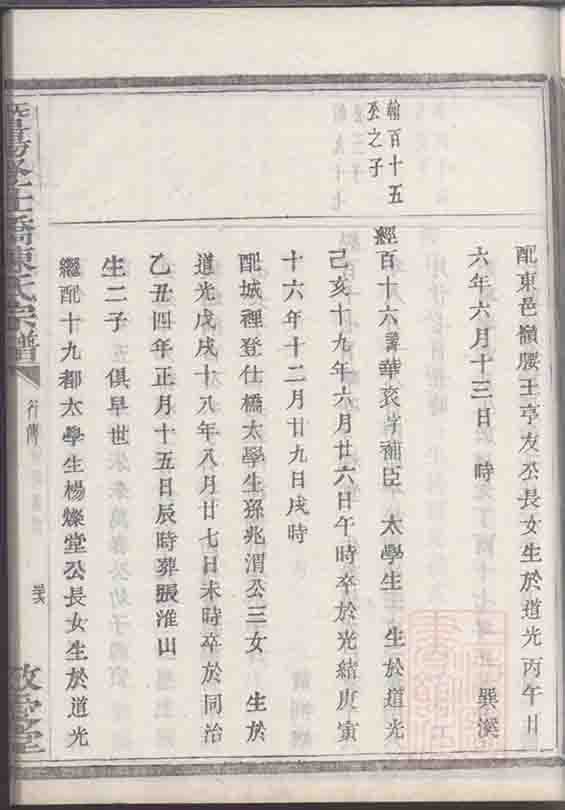 配東邑嶺腰王亨友公長女生於道光丙午廿
六年六月十三日 時 巽溪
翰百十五
公之子
經百十六諱華袞字補臣 太學生 生於道光
己亥十九年六月廿六日午時卒於光緒庚寅
十六年十二月廿九日戌時
配城裡登仕橋太學生孫兆渭公三女 生於
道光戊戌十八年八月廿七日未時卒於同治
乙丑四年正月十五日辰時葬張淮山
生二子 俱早世
繼配十九都太學生楊燦堂公長女生於道光
陳氏宗譜
行傳